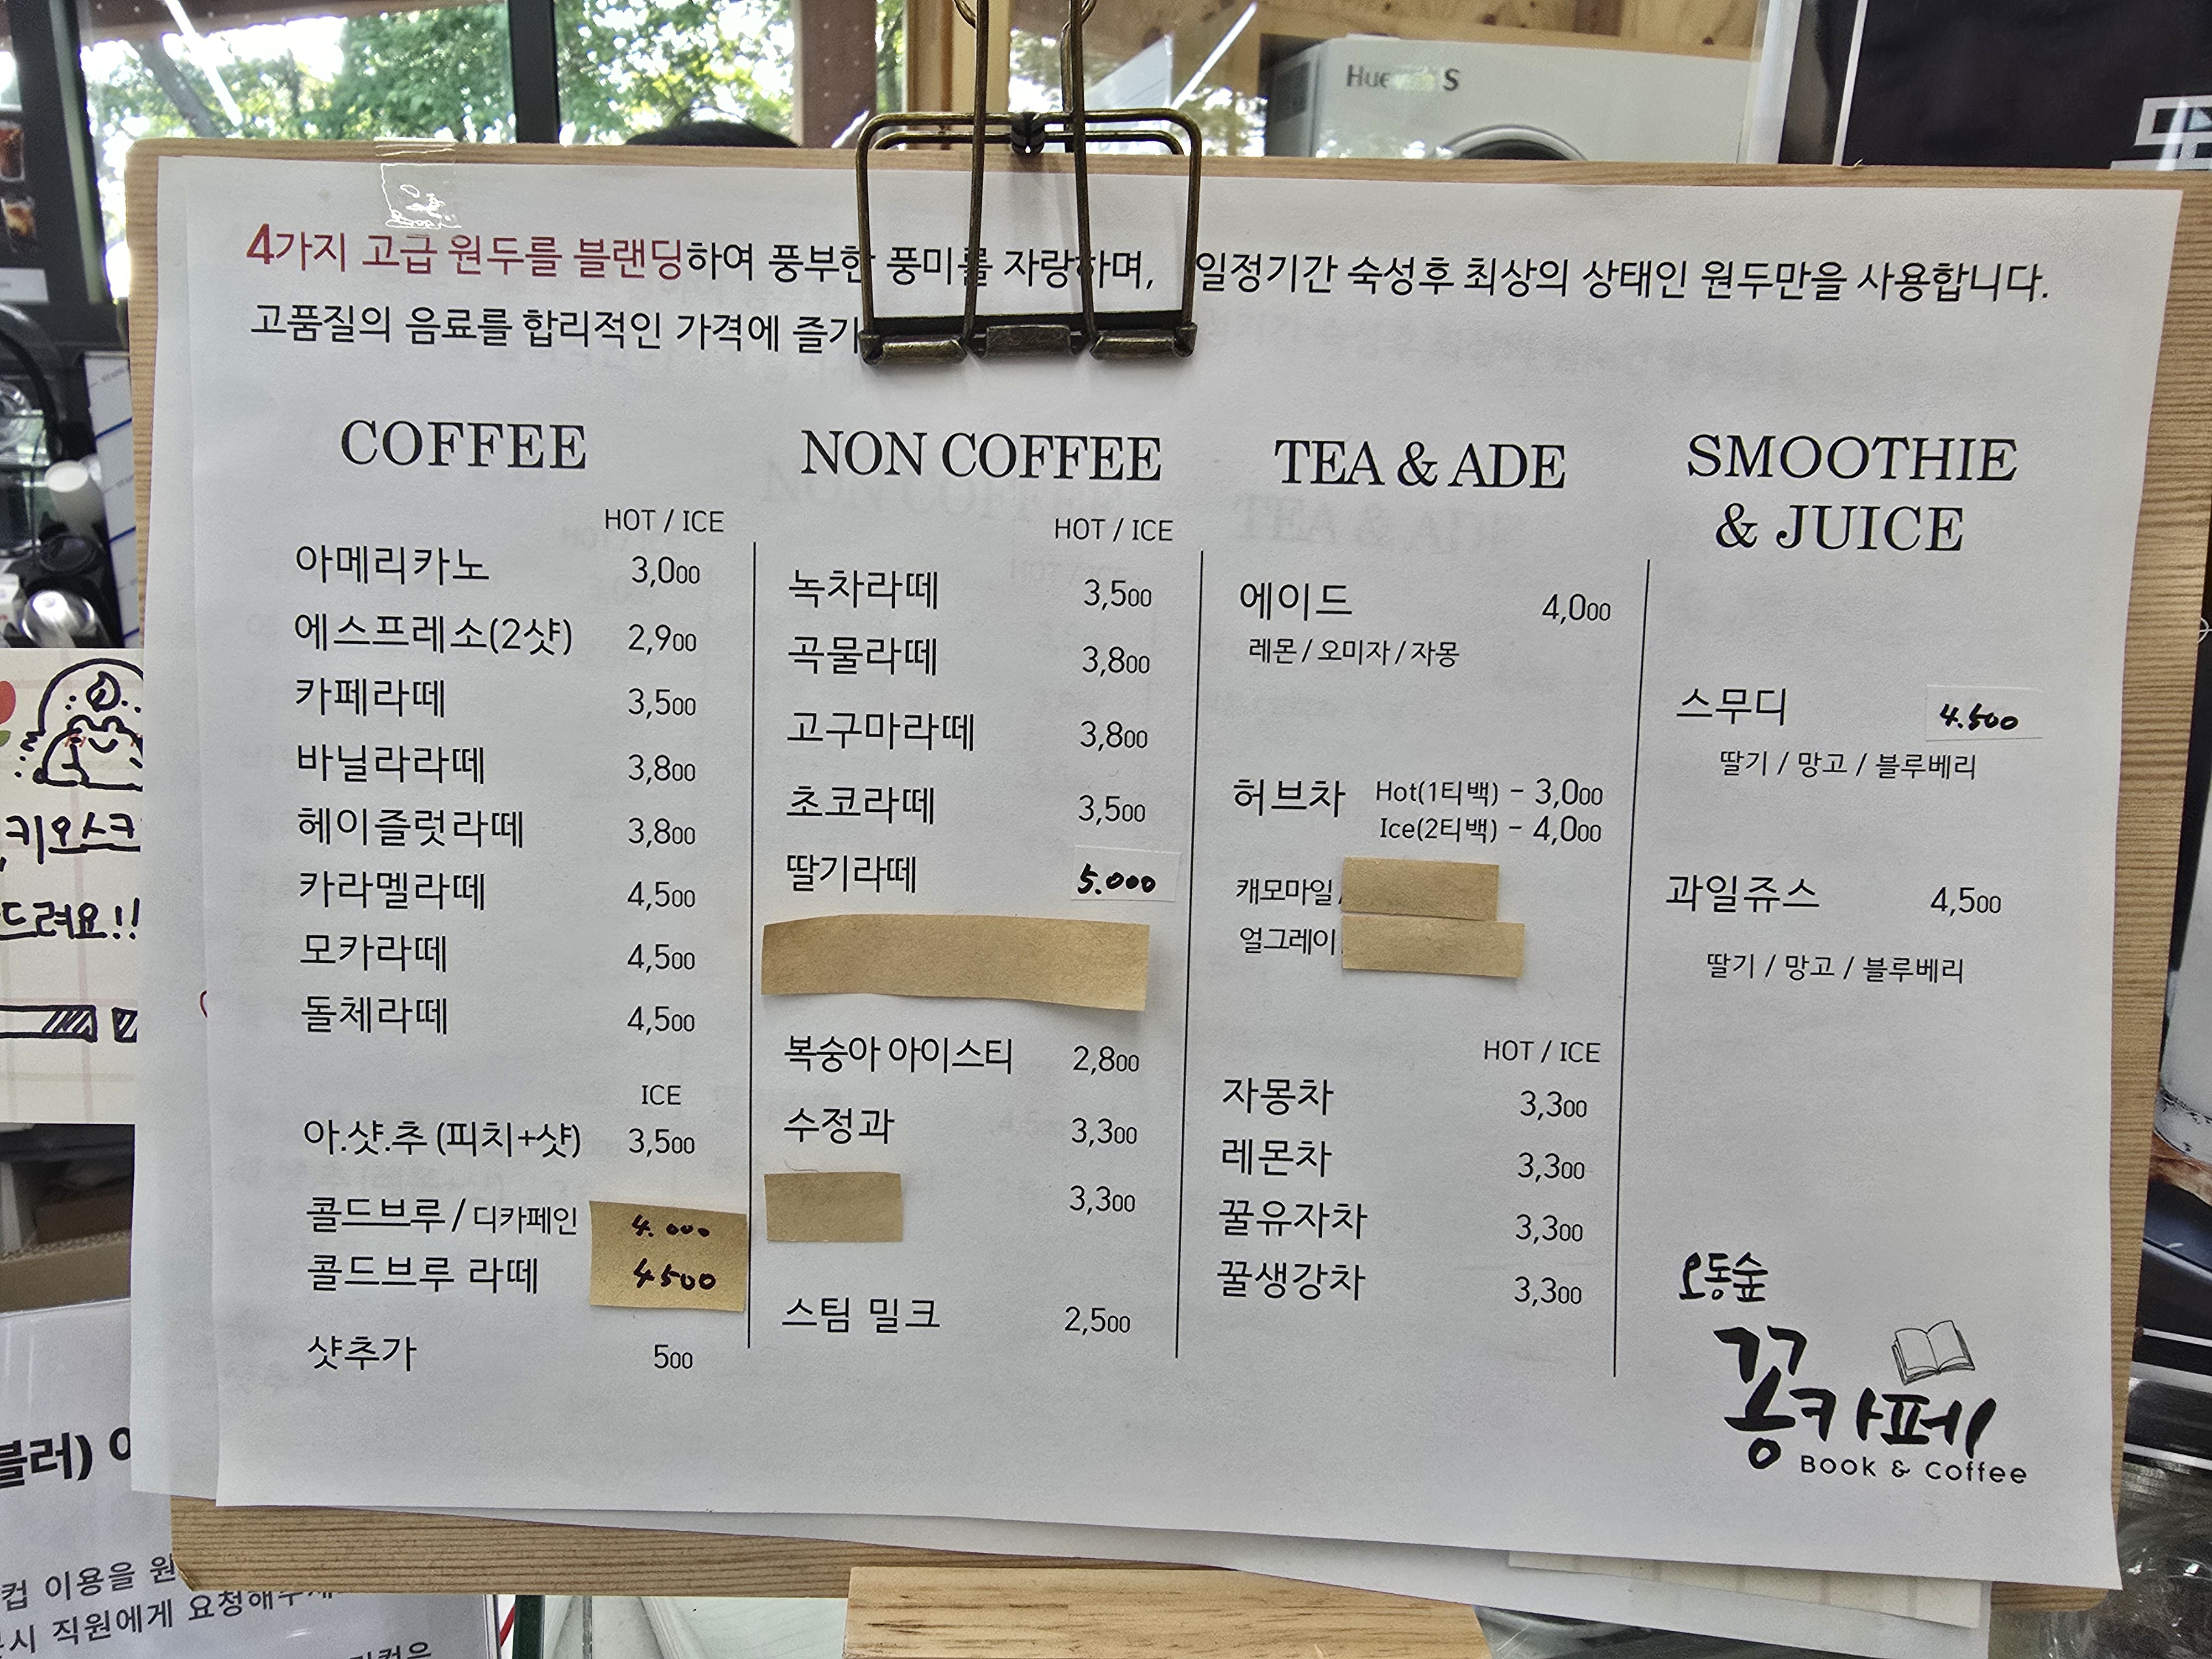 4가지 고급 원두를 블랜딩하여 풍부한 풍미를 자랑하며, 일정기간 숙성후 최상의 상태인 원두만을 사용합니다.
고품질의 음료를 합리적인 가격에 즐기
COFFEE
HOT / ICE
아메리카노 3,000
에스프레소(2샷) 2,900
카페라떼 3,500
바닐라라떼 3,800
헤이즐럿라떼 3,800
카라멜라떼 4,500
모카라떼 4,500
돌체라떼 4,500
ICE
아.샷.추 (피치+샷) 3,500
콜드브루 / 디카페인 4.000
콜드브루 라떼 4500
샷추가 500
NON COFFEE
HOT / ICE
녹차라떼 3,500
곡물라떼 3,800
고구마라떼 3,800
초코라떼 3,500
딸기라떼 5.000
복숭아 아이스티 2,800
수정과 3,300
3,300
스팀 밀크 2,500
TEA & ADE
에이드 4,000
레몬 / 오미자 / 자몽
허브차 Hot(1티백) - 3,000
Ice(2티백) - 4,000
캐모마일
얼그레이
HOT / ICE
자몽차 3,300
레몬차 3,300
꿀유자차 3,300
꿀생강차 3,300
SMOOTHIE
& JUICE
스무디 4.500
딸기 / 망고 / 블루베리
과일쥬스 4,500
딸기 / 망고 / 블루베리
오동숲
꽁카페
Book & Coffee
키오스크
드려요!!
블러)
컵 이용을 원
시 직원에게 요청해주세
S